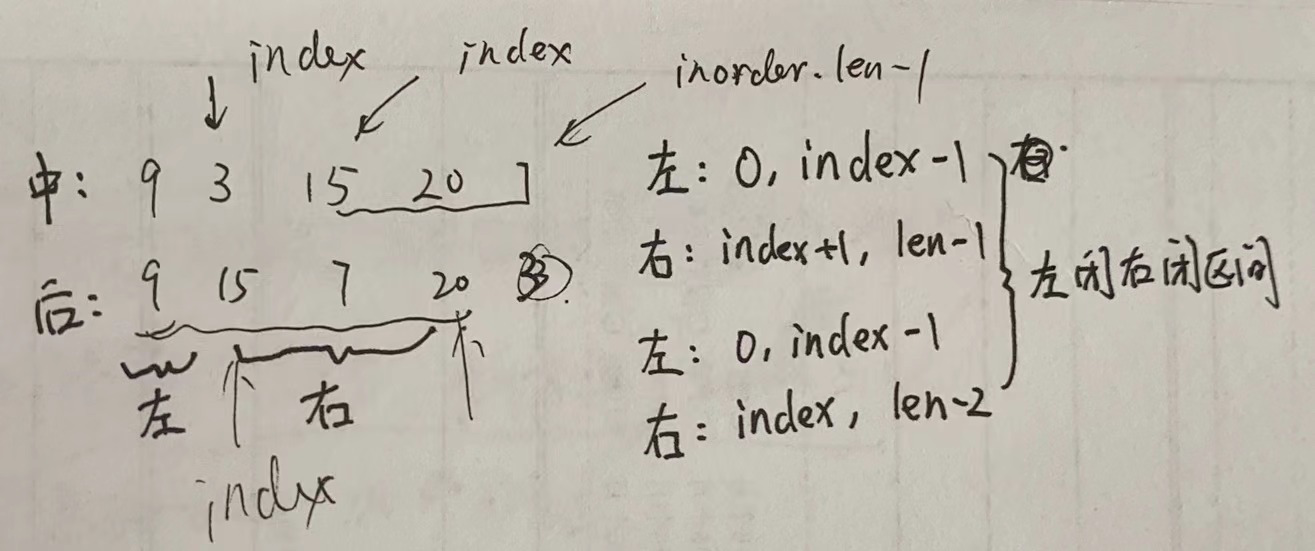 index index inorder.len-1
中: 9 3 15 20 7
后: 9 15 7 20 3
左 右
index
左: 0, index-1
右: index+1, len-1
左: 0, index-1
右: index, len-2
左闭右闭区间